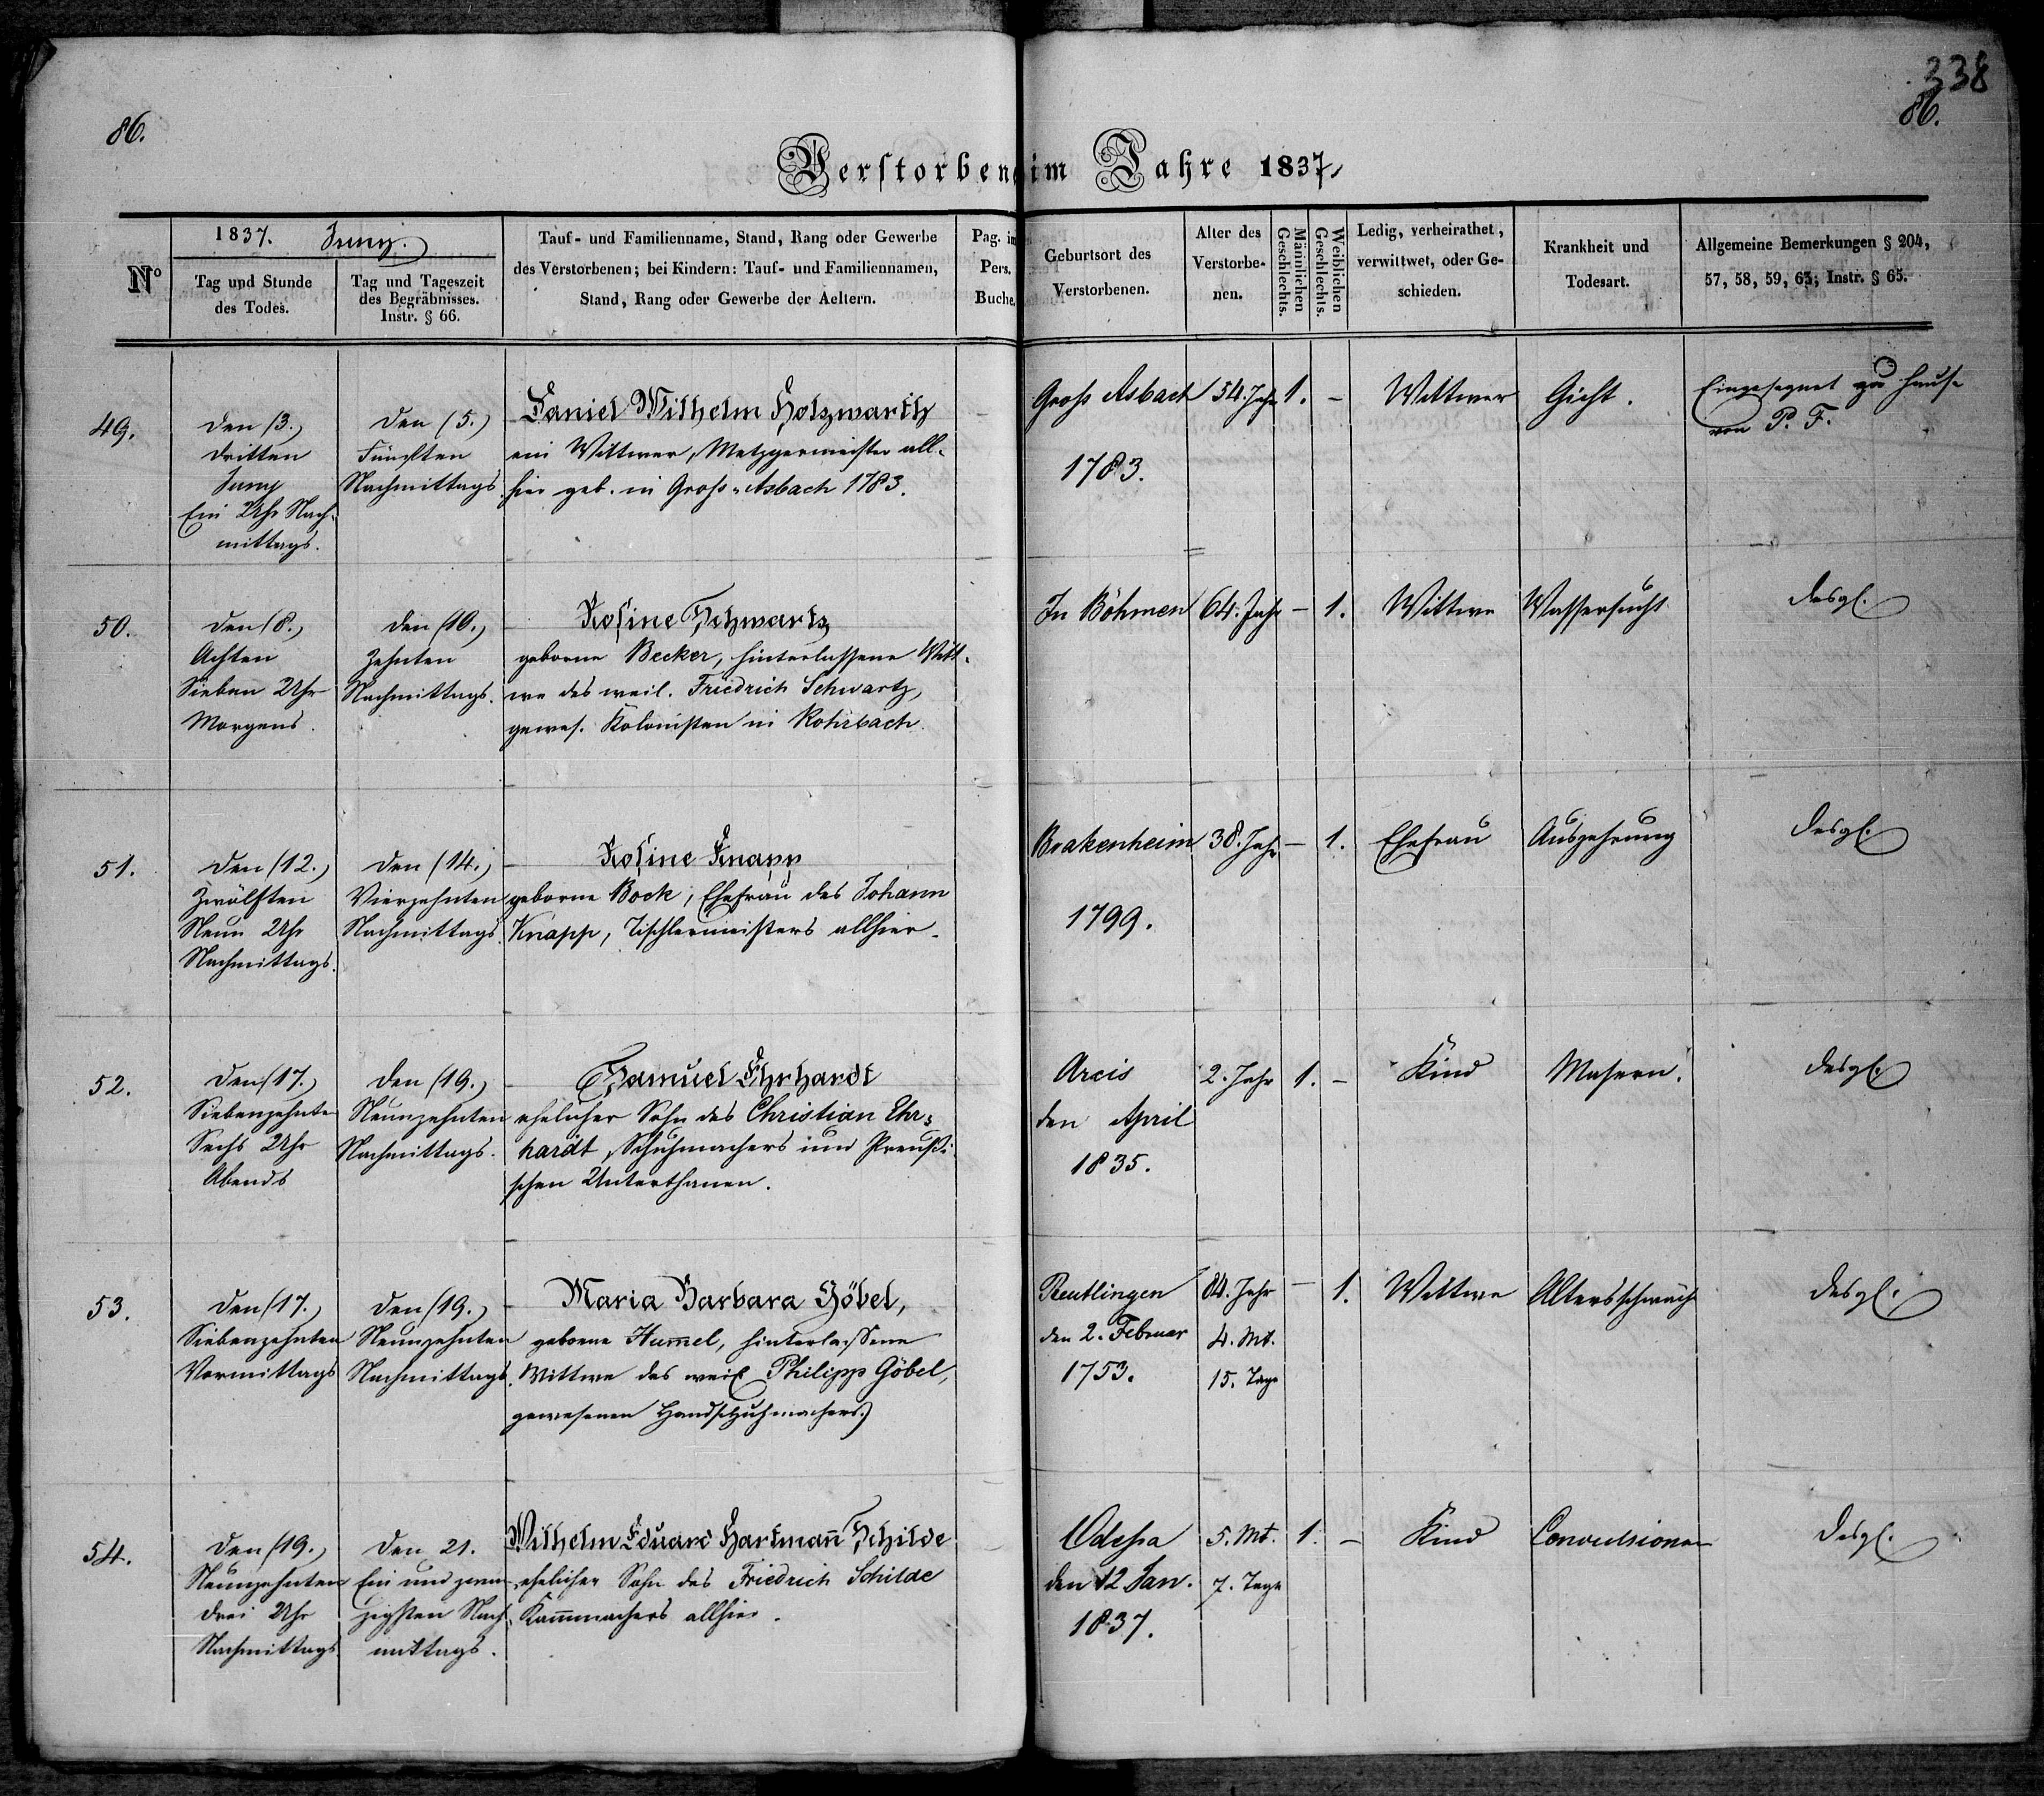 338
86.
86.
Verstorben im Jahre 1837.
1837. Juny.
Nº
Tag und Stunde
des Todes.
Tag und Tageszeit
des Begräbnisses.
Instr. § 66.
Tauf- und Familienname, Stand, Rang oder Gewerbe
des Verstorbenen; bei Kindern: Tauf- und Familiennamen,
Stand, Rang oder Gewerbe der Aeltern.
Pag. im
Pers.
Buche.
Geburtsort des
Verstorbenen.
Alter des
Verstorbe-
nen.
Männlichen
Geschlechts.
Weiblichen
Geschlechts.
Ledig, verheirathet,
verwittwet, oder Ge-
schieden.
Krankheit und
Todesart.
Allgemeine Bemerkungen § 204,
57, 58, 59, 63; Instr. § 65.
49.
den (3.)
dritten
Juny
Ein Uhr Nach-
mittags.
den (5.)
Fünften
Nachmittags
Daniel Wilhelm Holzwarth
ein Wittwer, Metzgermeister all-
hier geb. in Groß-Asbach 1783.
Groß Asbach
1783.
54. Jahr
1.
–
Wittwer
Gicht.
Eingesegnet zu Hause
von P. F.
50.
den (8.)
Achten
Sieben Uhr
Morgens.
den (10.)
Zehnten
Nachmittags.
Rosine Schwartz
geborne Becker, hinterlassene Witt-
we des weil. Friedrich Schwartz,
gewes. Kolonisten in Rohrbach.
In Böhmen
64. Jahr
–
1.
Wittwe
Wassersucht
desgl.
51.
den (12.)
Zwölften
Neun Uhr
Nachmittags.
den (14.)
Vierzehnten
Nachmittags.
Rosine Knapp
geborne Bock, Ehefrau des Johann
Knapp, Tischlermeisters allhier.
Brakenheim
1799.
38. Jahr
–
1.
Ehefrau
Auszehrung
desgl.
52.
den (17.)
Siebenzehnten
Sechs Uhr
Abends
den (19.)
Neunzehnten
Nachmittags.
Samuel Ehrhardt
ehelicher Sohn des Christian Ehr-
hardt, Schuhmachers und Preußi-
schen Unterthanen.
Arcis
den April
1835.
2. Jahr
1.
–
Kind
Masern.
desgl.
53.
den (17.)
Siebenzehnten
Vormittags
den (19.)
Neunzehnten
Nachmittags.
Maria Barbara Göbel,
geborne Hum̅el, hinterlassene
Wittwe des weil. Philipp Göbel,
gewesenen Handschuhmachers.
Reutlingen
den 2. Februar
1753.
84. Jahr
4. Mt.
15. Tage
–
1.
Wittwe
Altersschwäche
desgl.
54.
den (19.)
Neunzehnten
drei Uhr
Nachmittags
den 21.
Ein und zwan-
zigsten Nach-
mittags.
Wilhelm Eduard Hartman̅ Schilde
ehelicher Sohn des Friedrich Schilde
Kam̅machers allhier.
Odessa
den 12 Jan.
1837.
5. Mt.
7. Tage
1.
–
Kind
Convulsionen
desgl.